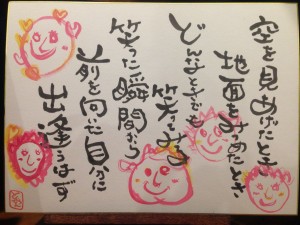 空を見あげたとき
地面をみつめたとき
どんなときでも
笑ってみよ
笑った瞬間から
前を向いた自分に
出逢うはず